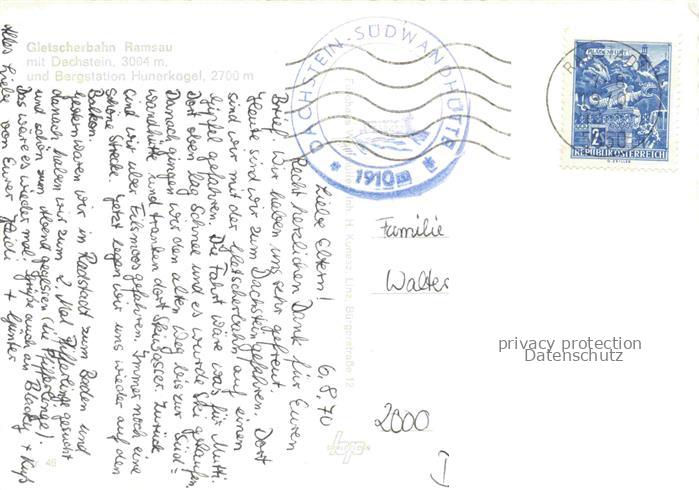 Gletscherbahn Ramsau
mit Dachstein, 3004 m,
und Bergstation Hunerkogel, 2700 m
DACHSTEIN-SÜDWANDHÜTTE
1910m
KLAGENFURT
2S
REPUBLIK ÖSTERREICH
6.8.70
Liebe Eltern!
Recht herzlichen Dank für Euren
Brief. Wir haben uns sehr gefreut.
Heute sind wir zum Dachstein gefahren. Dort
sind wir mit der Gletscherbahn auf einen
Gipfel gefahren. Die Fahrt wäre was für Mutti.
Dort oben lag Schnee und es wurde Ski gelaufen.
Danach gingen wir den alten Weg bis zur Süd=
wandhütte und tranken dort Skiwasser. Zurück
sind wir über Filzmoos gefahren. Immer noch eine
schöne Strecke. Jetzt legen wir uns wieder auf den
Balkon.
Gestern waren wir in Radstadt zum Baden und
danach haben wir zum 2. Mal Pfifferlinge gesucht
und schön zum Abend gegessen (die Pfifferlinge).
Das wäre es wieder mal. Grüße auch an Blacky + Kuß
Alles Liebe von Eurer Heidi + Günter
Familie
Walter
2000
privacy protection
Datenschutz
H. Kunesz, Linz, Bürgerstraße 12
46